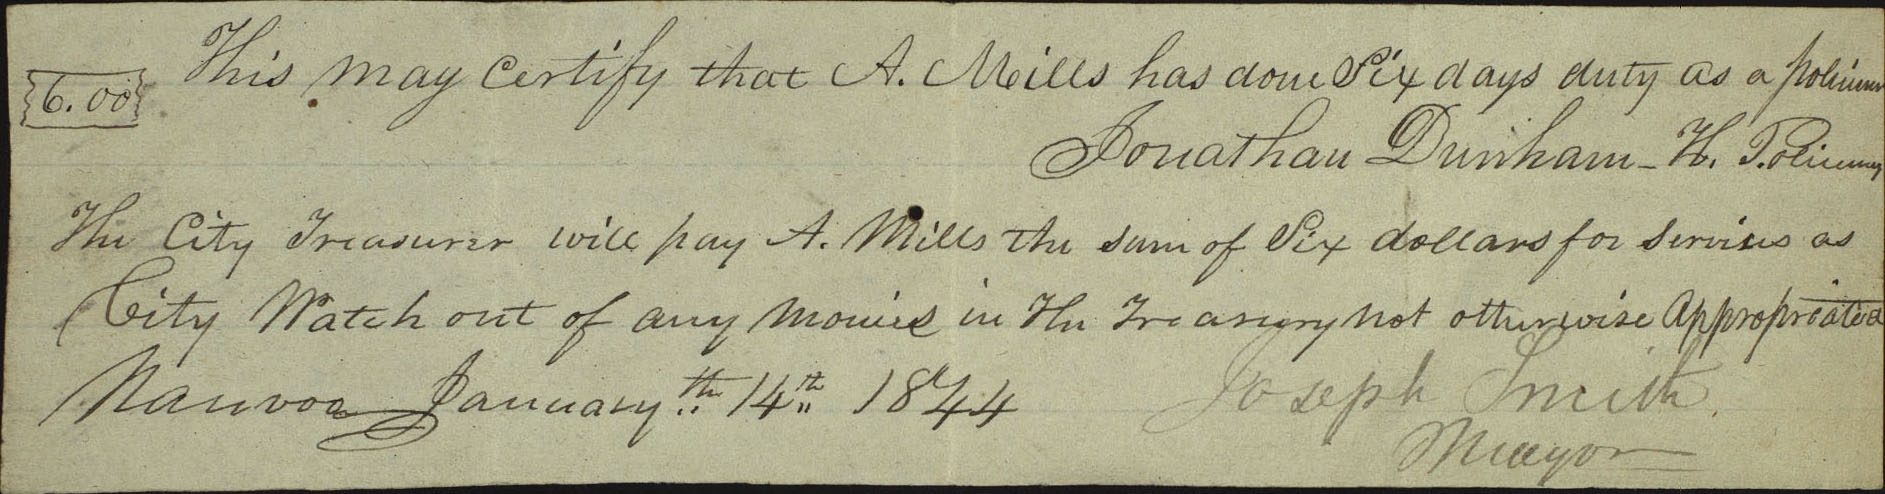 This may certify that A. Mills has done Six days duty as a policeman
6.00
Jonathan Dunham - H. Policeman
The City Treasurer will pay A. Mills the sum of Six dollars for Services as
City Watch out of any Monies in the Treasury not otherwise Appropriated
Nauvoo January th 14th 1844
Joseph Smith
Mayor